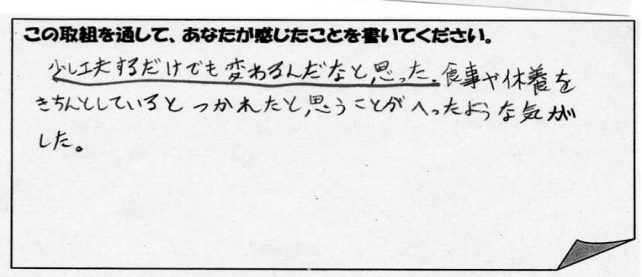 この取組を通して、あなたが感じたことを書いてください。
少し工夫するだけでも変わるんだなと思った。食事や休養を
きちんとしているとつかれたと思うことがへったような気が
した。